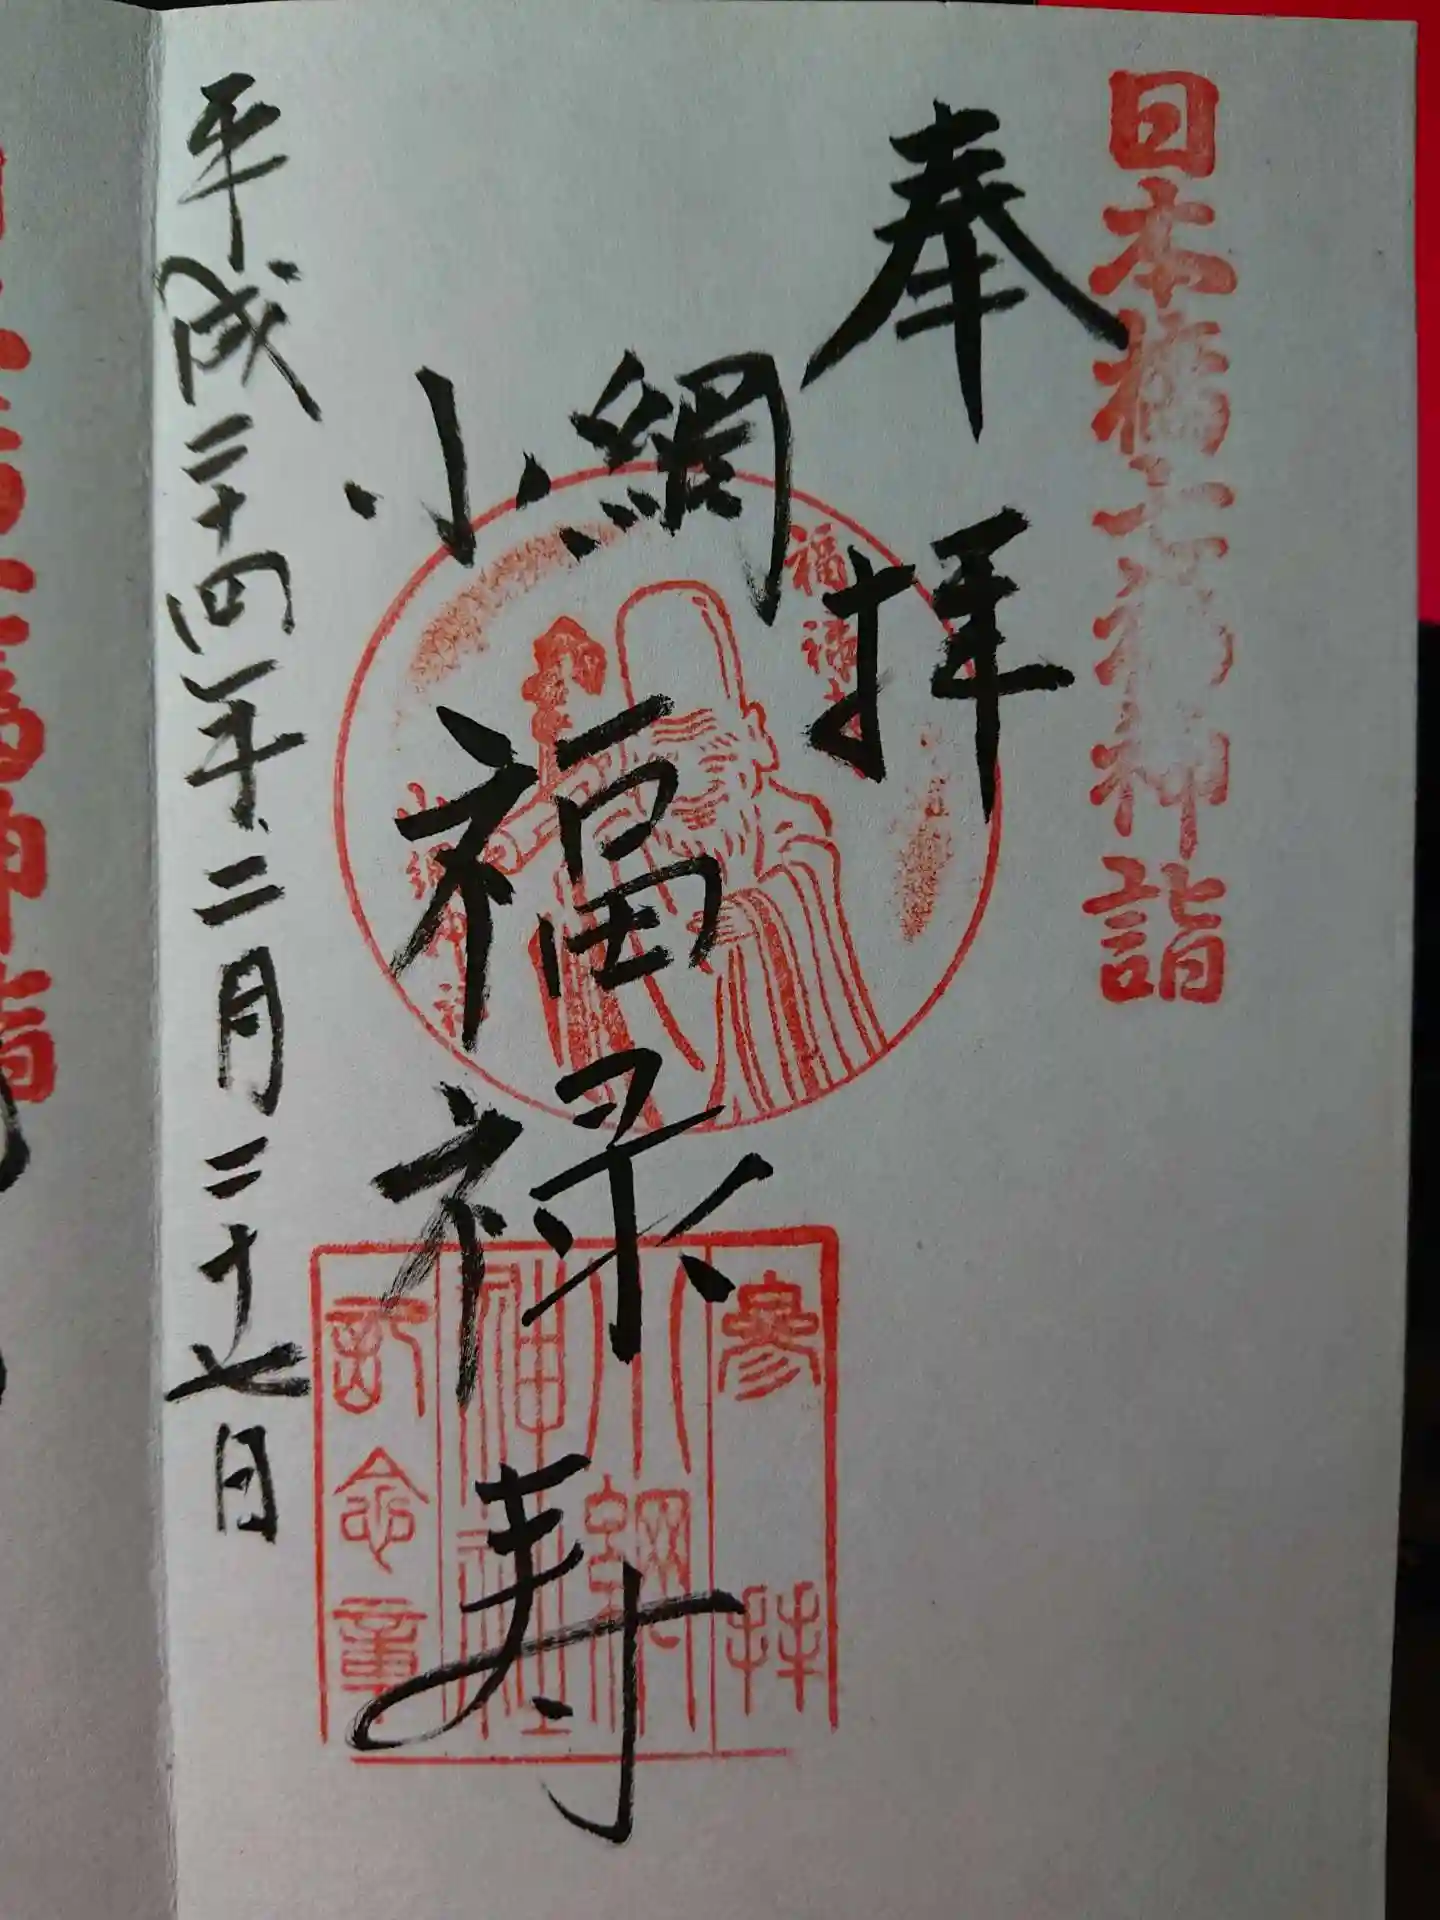 日本橋七福神詣
奉拝
小網
福禄寿
福禄寿
小網神社
参拝
小網
神社
記念章
平成二十四年二月二十七日